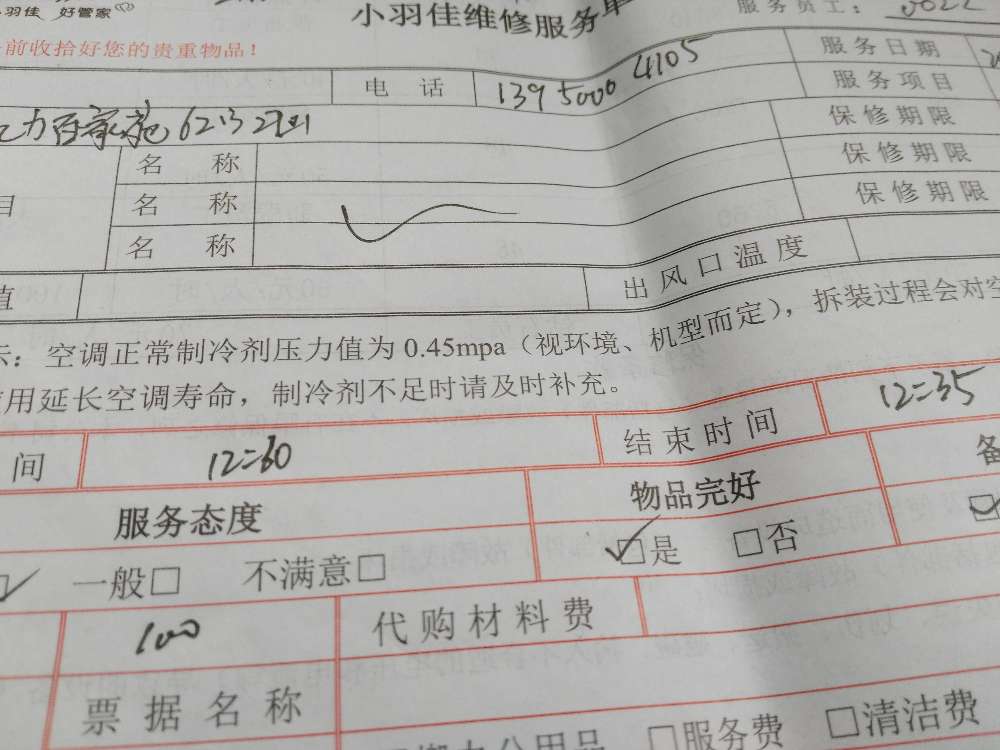 小羽佳 好管家
小羽佳维修服务单
服务员工：
前收拾好您的贵重物品！
电 话 139 5000 4105
服务日期
服务项目
保修期限
名 称 保修期限
名 称 保修期限
名 称
值 出风口温度
示：空调正常制冷剂压力值为0.45mpa（视环境、机型而定），拆装过程会对空
使用延长空调寿命，制冷剂不足时请及时补充。
间 12=60 结束时间 12=35
服务态度 物品完好 备
一般□ 不满意□ ☑是 □否
100 代购材料费
票据名称
□服务费 □清洁费